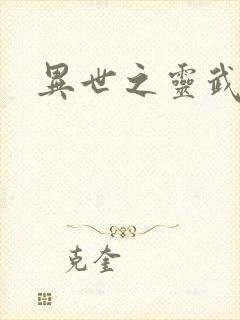 異世之靈武
克奎